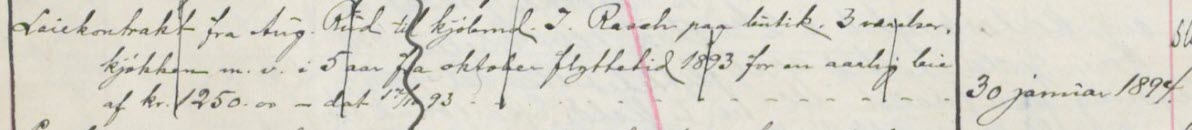 Leiekontrakt fra Aug. Rüd til kjøbmd. I. Rasch paa butik, 3 værelser,
kjøkken m. v. i 5 aar fra oktober flyttetid 1893 for en aarlig leie
af kr. 1250.00 – dat 93 - - - - - - - - - - 30 januar 1894.